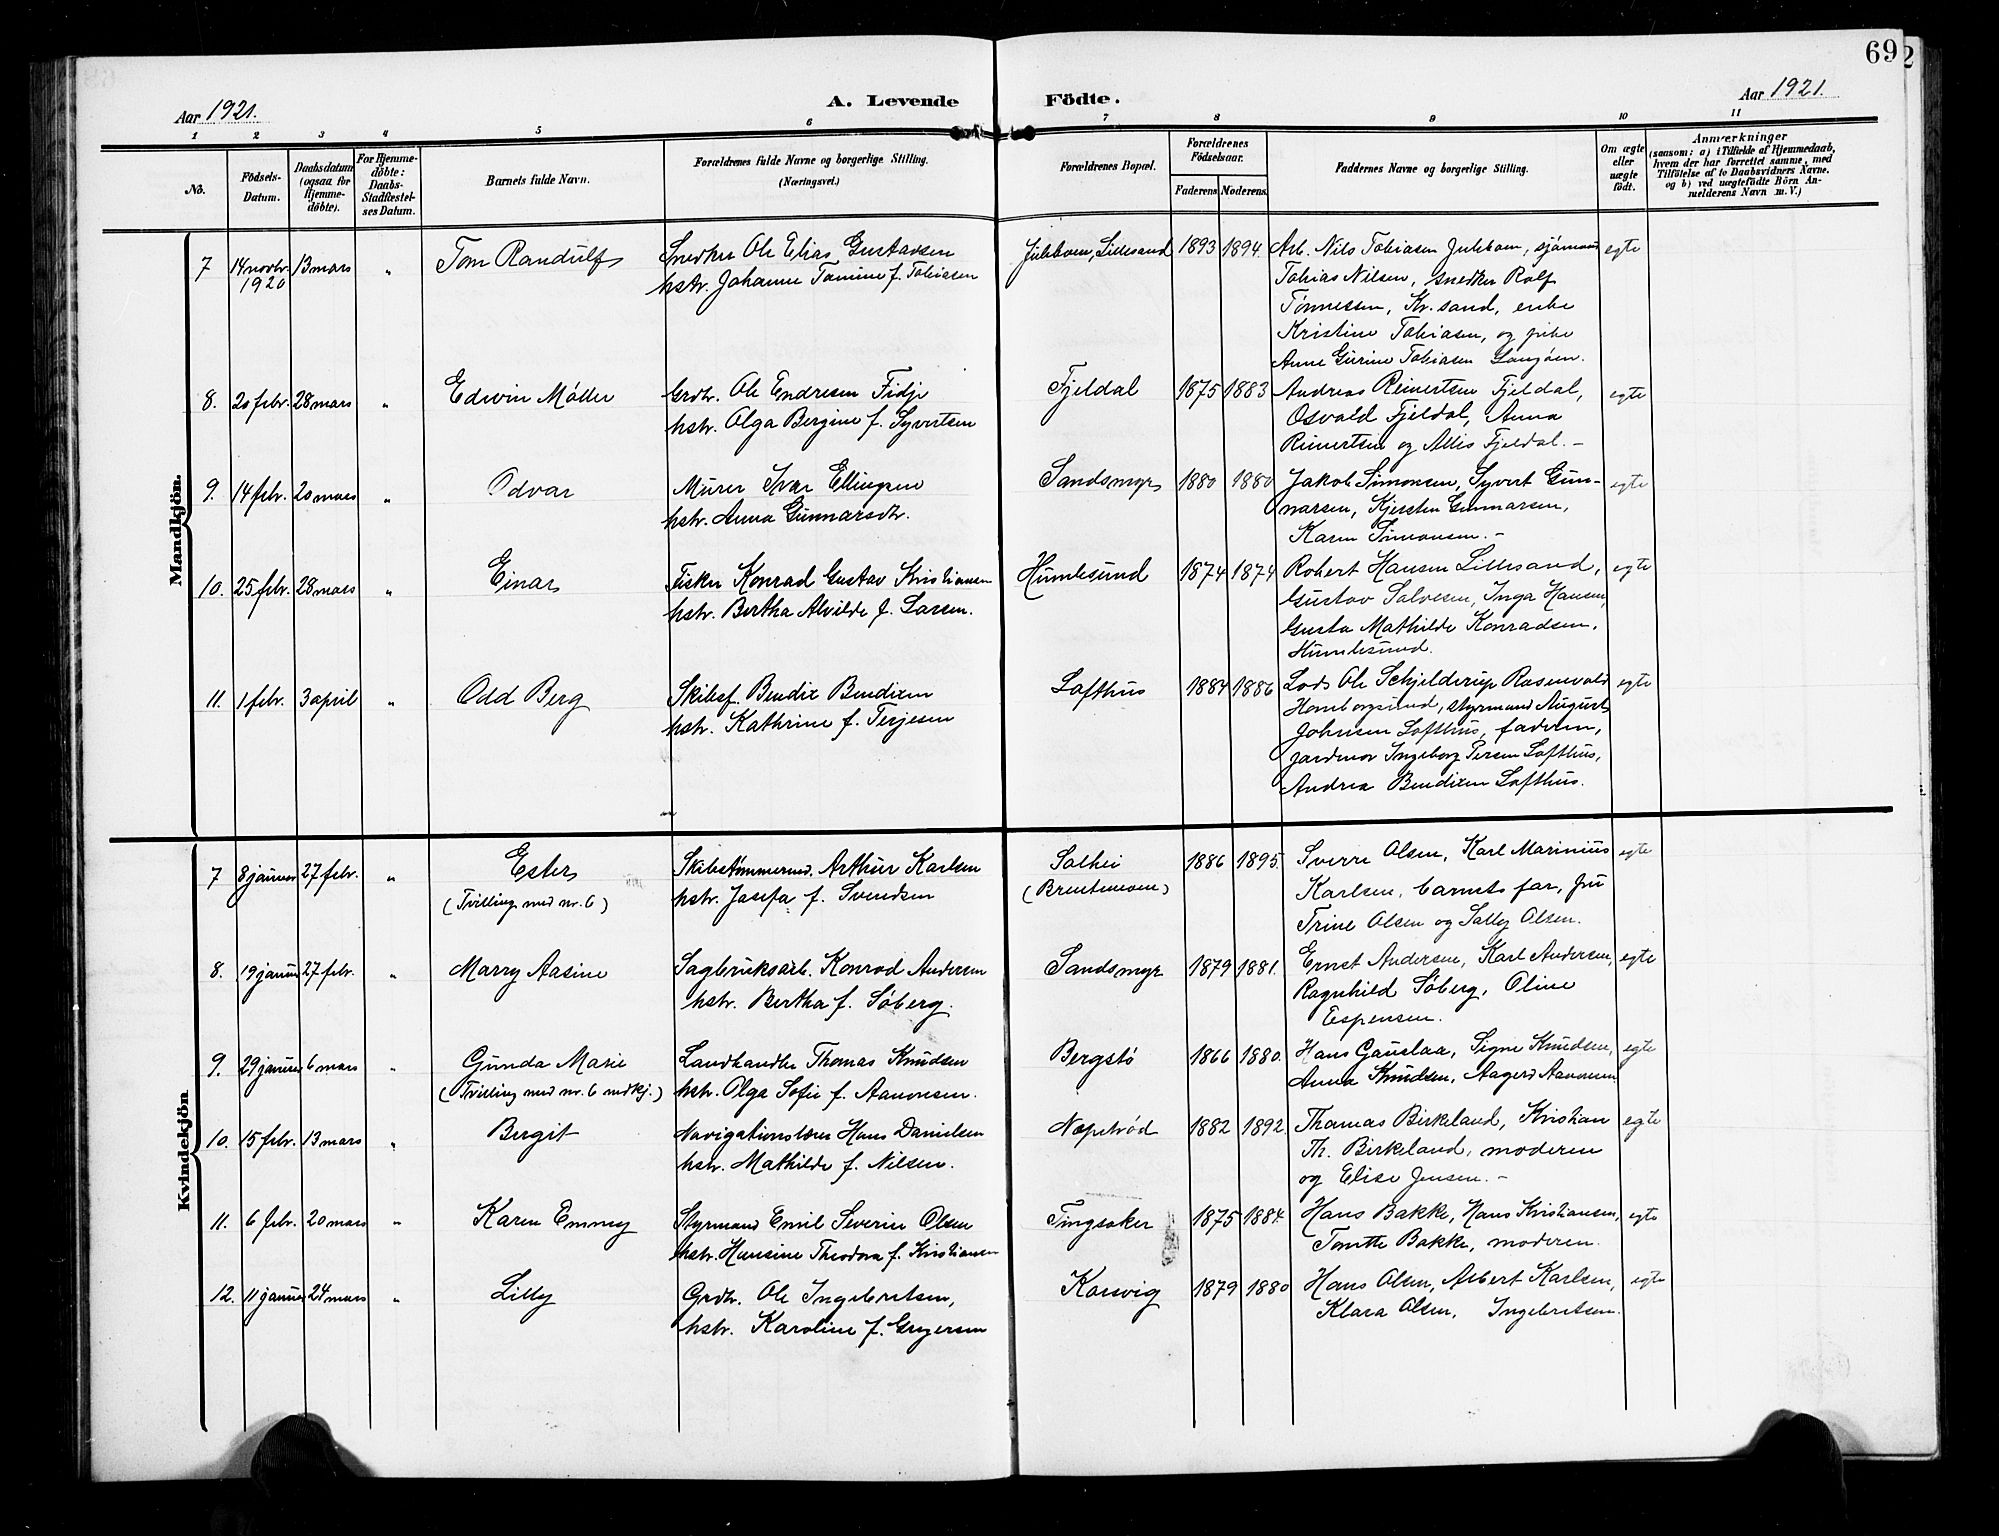 69
2
Aar 1921.
A. Levende Födte.
Aar 1921.
1 2 3 4 5 6 7 8 9 10 11
No.
Födsels-
Datum.
Daabsdatum
(ogsaa for
Hjemme-
döbte).
For Hjemme-
döbte:
Daabs-
Stadfæstel-
ses Datum.
Barnets fulde Navn.
Forældrenes fulde Navne og borgerlige Stilling.
(Næringsvei.)
Forældrenes Bopæl.
Forældrenes
Födselsaar.
Faderens Moderens.
Faddernes Navne og borgerlige Stilling.
Om ægte
eller
uægte
födt.
Anmærkninger
(saasom: a) i Tilfælde af Hjemmedaab,
hvem der har forrettet samme, med
Tilföielse af to Daabsvidners Navne,
og b) ved uægtefödte Börn An-
melderens Navn m. V.)
Mandkjön.
7 14 novbr. 1920 13 mars " Tom Randulf
Snedker Ole Elias Gustavsen
hstr. Johanne Tomine f. Tobiasen
Juleboen, Lillesand 1893 1894
Arb. Nils Tobiasen Juleboen, sjömand
Tobias Nilsen, snedker Rolf
Tönnessen, Kr.sand, enke
Kristine Tobiasen, og pike
Anne Gurine Tobiasen Langöen.
egte
8. 20 febr. 28 mars " Edwin Möller
Grdbr. Ole Endresen Fidje
hstr. Olga Bergine f. Syvertsen
Fjeldal 1875 1883
Andreas Reinertsen Fjeldal,
Osvald Fjeldal, Anna
Reinertsen og Allis Fjeldal. -
egte
9. 14 febr. 20 mars " Odvar
Murer Ivar Ellingsen
hstr. Anna Gunnarsdtr.
Sandsmyr 1880 1880
Jakob Simonsen, Syvert Gun-
narsen, Kjersten Gunnarsen,
Karen Simonsen. -
egte
10. 25 febr. 28 mars " Einar
Fisker Konrad Gustav Kristiansen
hstr. Bertha Alvilde f. Larsen.
Humlesund 1874 1874
Robert Hansen Lillesand,
Gustav Salvesen, Inga Hansen,
Gusta Mathilde Konradsen,
Humlesund.
egte
11. 1 febr. 3 april " Odd Berg
Skibsf. Bendix Bendixen
hstr. Kathrine f. Terjesen
Lofthus 1884 1886
Lods Ole Schjelderup Rosenvold
Homborgsund, styrmand August
Johnsen Lofthus, faderen,
jordmor Ingeborg Persen Lofthus,
Andrea Bendixen Lofthus.
egte
Kvindekjön
7 8 januar 27 febr. " Ester
(Tvilling med nr. 6)
Skibstömmermd. Arthur Karlsen
hstr. Josefa f. Svendsen
Salhei
(Brentemoen)
1886 1895.
Sverre Olsen, Karl Marinius
Karlsen, barnets far, fru
Trine Olsen og Sally Olsen.
egte
8. 19 januar 27 febr. " Marry Aasine
Sagbruksarb. Konrad Andersen
hstr. Bertha f. Söberg.
Sandsmyr 1879 1881.
Ernst Andersen, Karl Andersen,
Ragnhild Söberg, Oline
Espensen.
egte
9. 29 januar 6 mars " Gunda Marie
(Tvilling med nr. 6 mdkj.)
Landhandler Thomas Knudsen
hstr. Olga Sofie f. Aanonsen.
Bergstö 1866 1880.
Hans Gauslaa, Signe Knudsen,
Anna Knudsen, Aagerd Aanonsen
egte
10. 15 febr. 13 mars " Bergit
Navigationslærer Hans Danielsen
hstr. Mathilde f. Nilsen.
Næpetröd 1882 1892.
Thomas Birkeland, Kristian
Th. Birkeland, moderen
og Elise Jensen. -
egte
11. 6 febr. 20 mars " Karen Emmy
Styrmand Emil Severin Olsen
hstr. Hansine Theodora f. Kristiansen
Tingsaker 1875 1884.
Hans Bakke, Hans Kristiansen,
Tomette Bakke, moderen.
egte
12. 11 januar 24 mars " Lilly
Grdbr. Ole Ingebretsen,
hstr. Karoline f. Gregersen
Kosvig 1879 1880
Hans Olsen, Albert Karlsen,
Klara Olsen, Ingebretsen.
egte